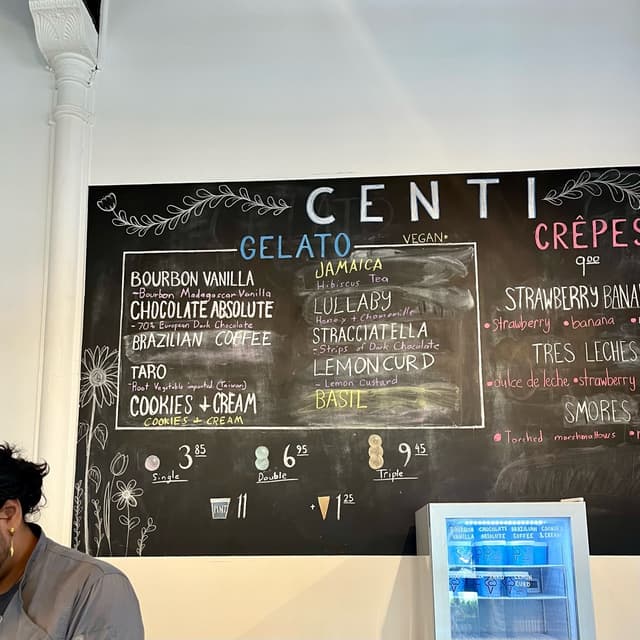 CENTI
GELATO
VEGAN*
BOURBON VANILLA
-Bourbon Madagascar Vanilla
CHOCOLATE ABSOLUTE
-70% European Dark Chocolate
BRAZILIAN COFFEE
TARO
-Root Vegetable imported (Taiwan)
COOKIES + CREAM
COOKIES + CREAM
JAMAICA
Hibiscus Tea
LULLABY
Honey + Chamomile
STRACCIATELLA
-Strips of Dark Chocolate
LEMON CURD
- Lemon Custard
BASIL
3.85
Single
6.95
Double
9.45
Triple
PINT 11
+ 1.25
CRÊPES
9.00
STRAWBERRY BANA
•strawberry •banana •
TRES LECHES
•dulce de leche •strawberry
SMORES
• Torched marshmallows •
BOURBON VANILLA
CHOCOLATE ABSOLUTE
BRAZILIAN COFFEE
COOKIE & CREAM
TARO
LEMON CURD